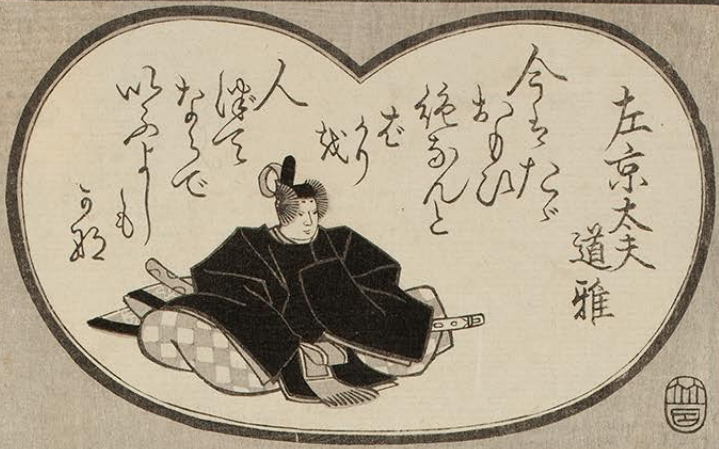 左京太夫
道雅
今はたゞ
おもひ
絶なんと
ば
かり
を
人
傳て
ならで
いふよしも
かな